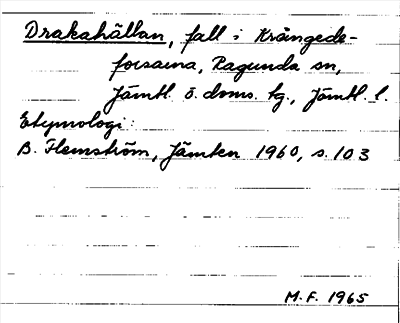 Drakahällan, fall i Krångede-
forsarna, Ragunda sn,
Jämtl. ö. doms. tg., Jämtl. l.
Etymologi:
B. Flemström, Jämten 1960, s. 103
M.F. 1965